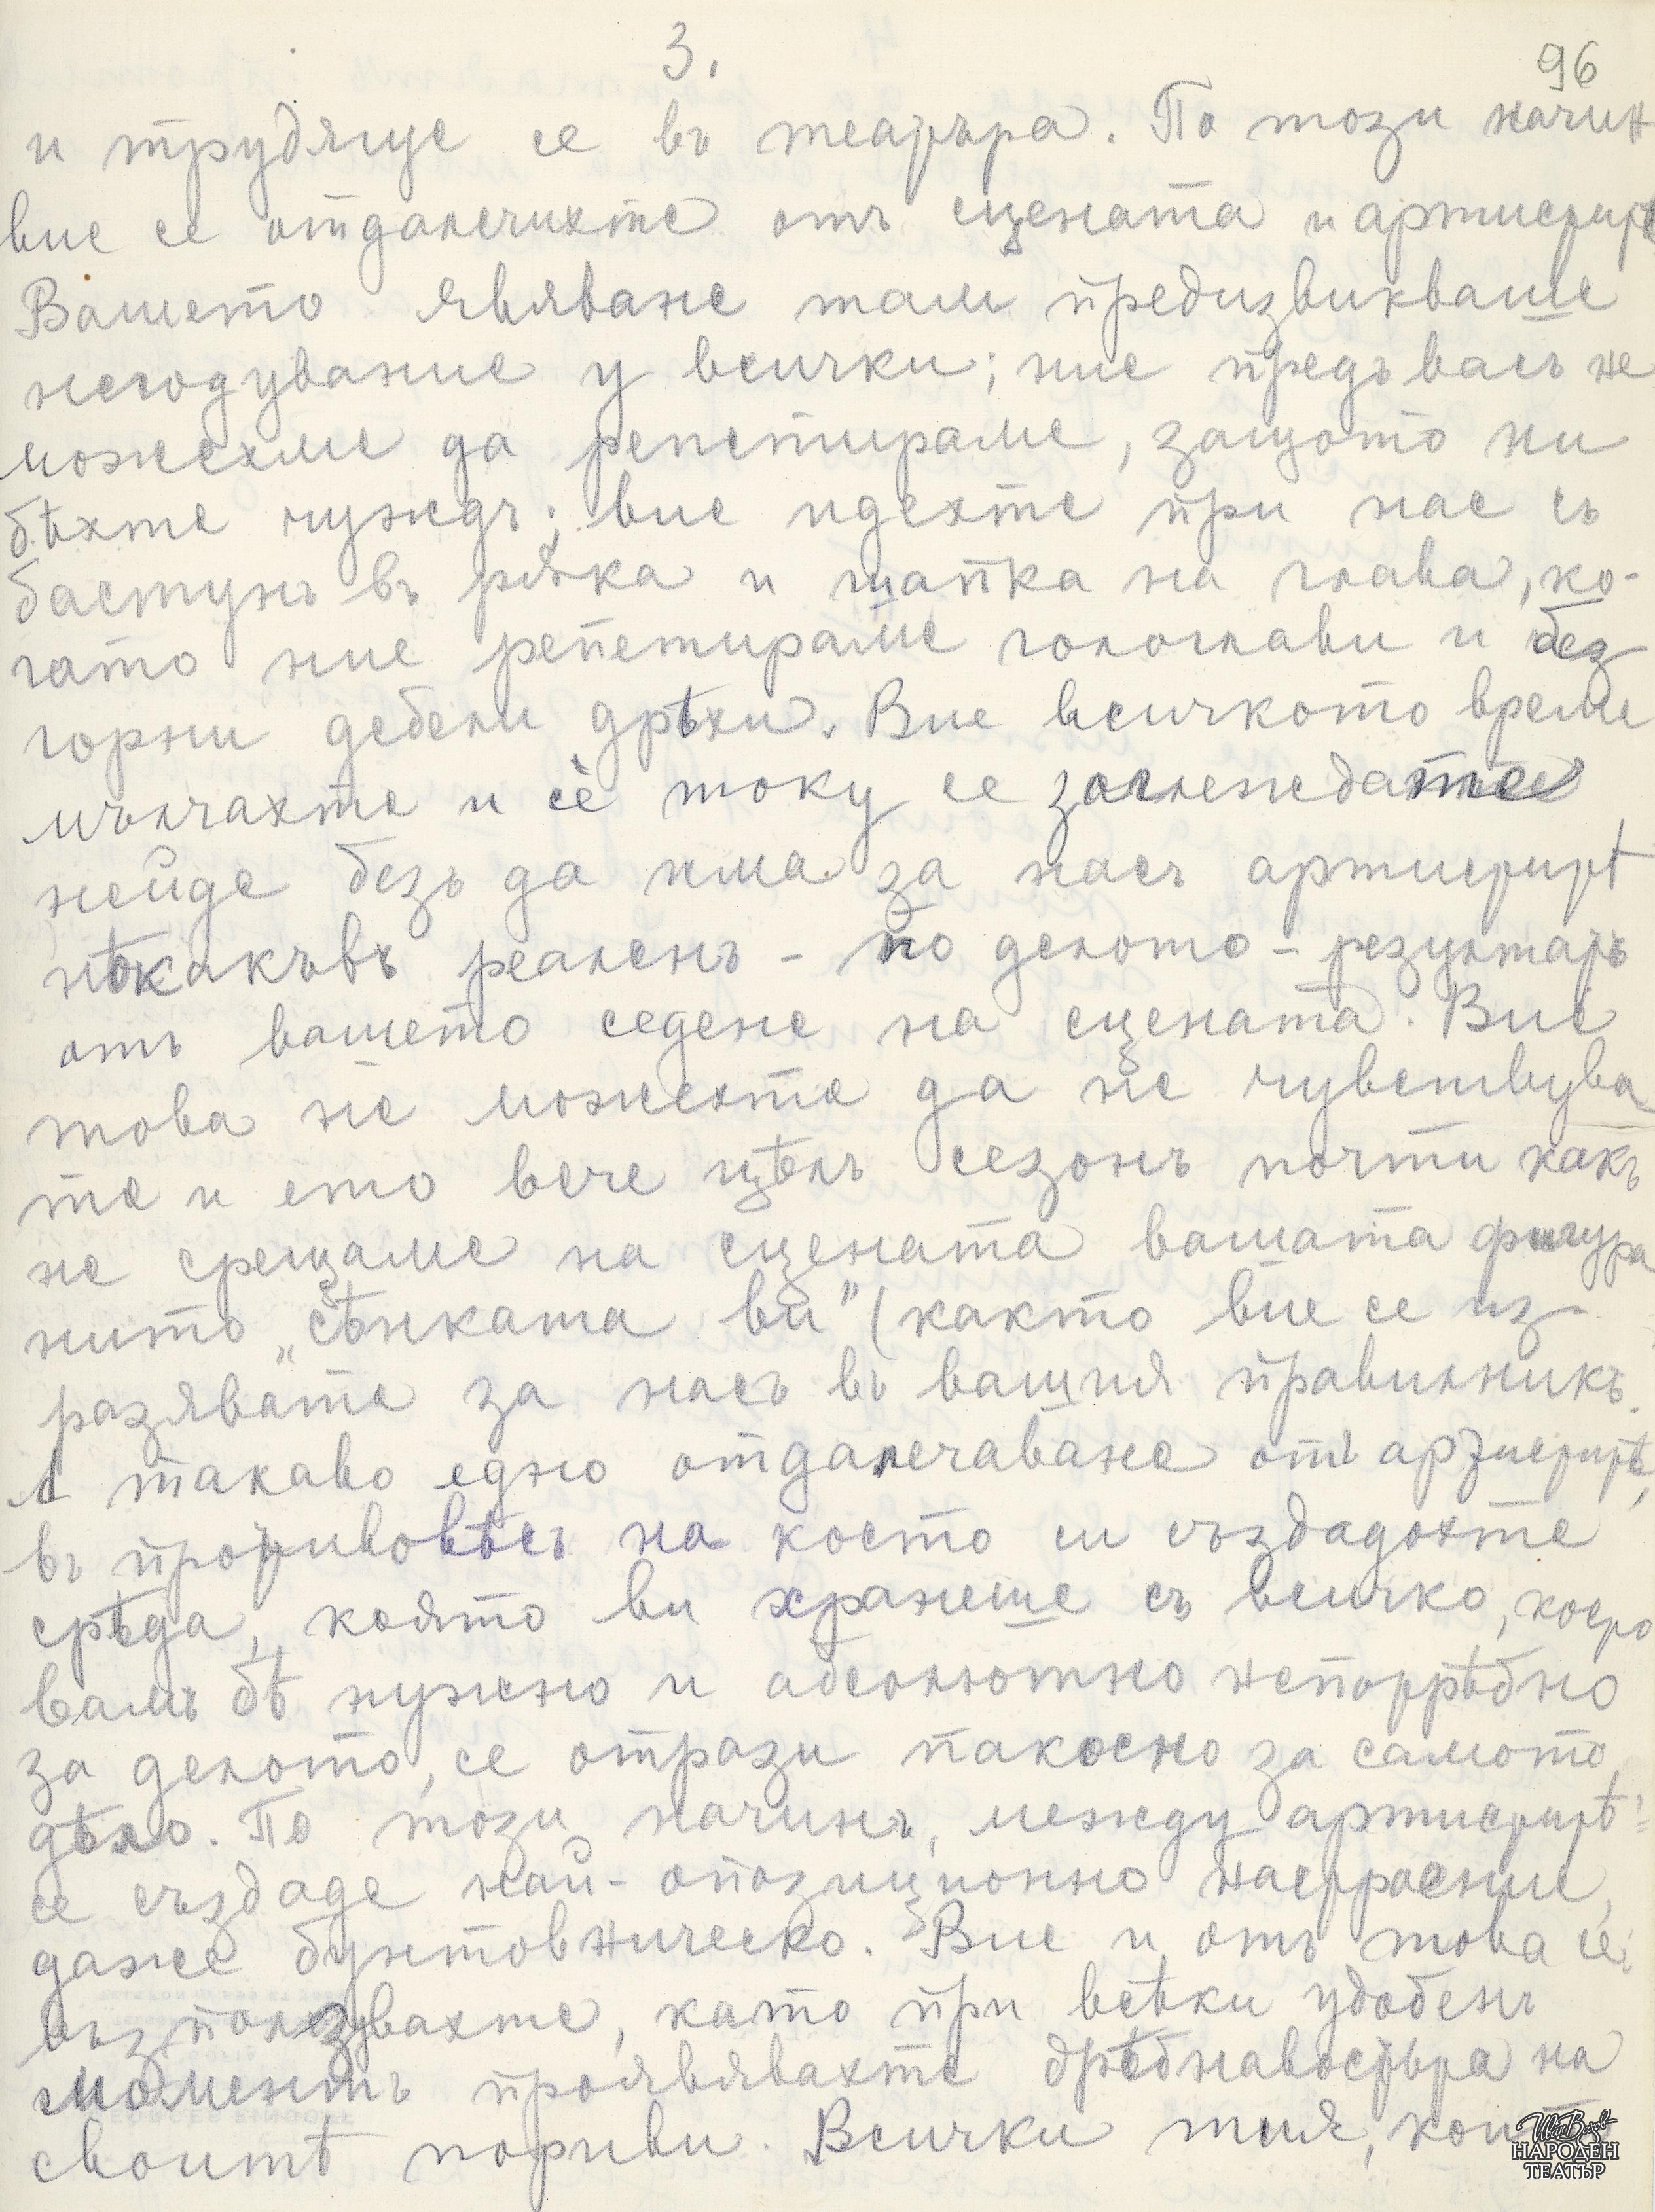 3.
96
и трудящие се въ театъра. По този начин
вие се отдалечихте отъ сцената и артистите
Вашето явяване там предизвикваше
негодувание у всички; ние предъ васъ не
можехме да репетираме, защото ни
бѣхте чуждъ; вие идехте при нас съ
бастунъ въ рѫка и шапка на глава, ко-
гато ние репетираме гологлави и без
горни дебели дрѣхи. Вие всичкото време
мълчахте и сѐ току се заглеждате
нейде безъ да има за насъ артиститѣ
нѣкакъвъ реаленъ - по делото - резултатъ
отъ вашето седене на сцената. Вие
това не можехте да не чувствува
те и ето вече цѣлъ сезонъ почти какъ
не срещаме на сцената вашата фигура
нито „сѣнката ви" (както вие се из-
разявате за насъ въ вашия правилникъ.
А такаво едно отдалечаване отъ артиститѣ,
въ противовѣсъ на което си създадохте
срѣда, която ви хранеше съ всичко, което
вамъ бѣ нужно и абсолютно непотрѣбно
за делото, се отрази пакосно за самото
дѣло. По този начинъ, между артиститѣ
се създаде най-опозиционно настроение,
даже бунтовническо. Вие и отъ това се
възползувахте, като при всѣки удобенъ
моментъ проявявахте дрѣбнавостьта на
своитѣ пориви. Всички тия, коит
Иван Вазов
НАРОДЕН
ТЕАТЪР